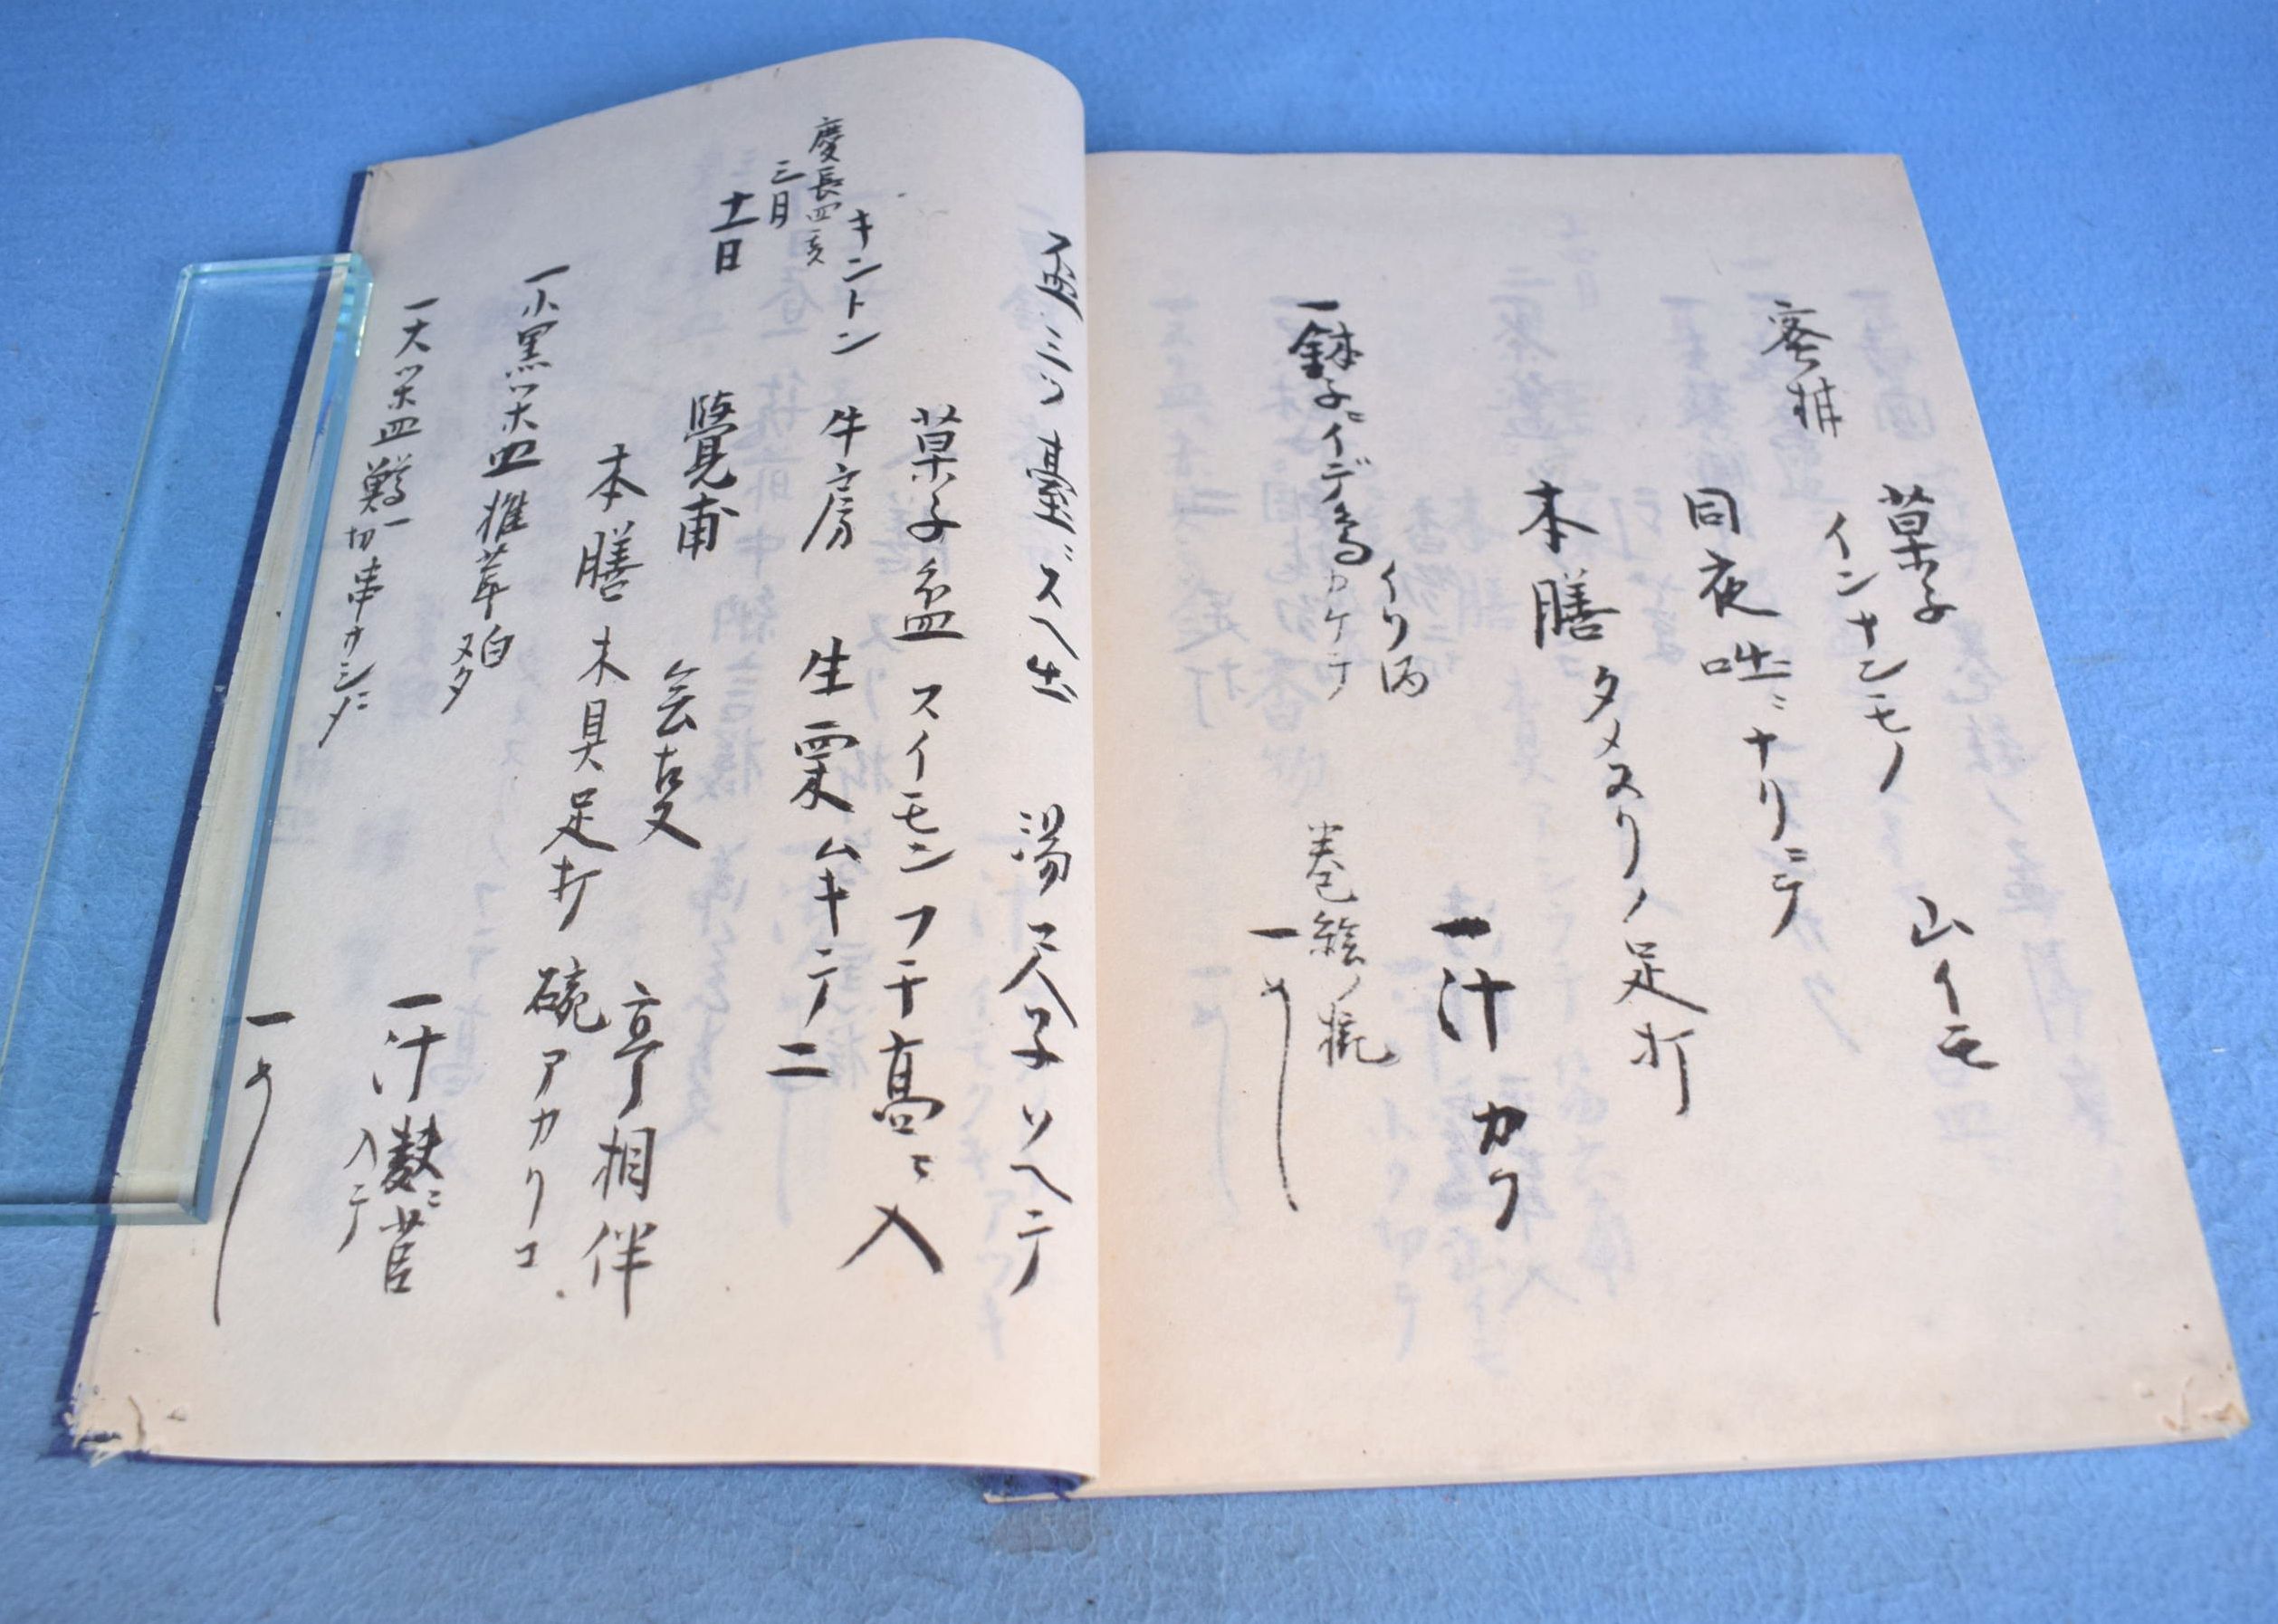 菓子 山イモ
インナンモノ
蜜柑
同夜咄ニナリニテ
本膳 タメヌリノ足打
一汁 カク
イリ
一鉢子ニイデ鳥カケテ 巻絵ノ椀
一めし
三ツ臺ニスヘ出 湯 天子ソヘテ
菓子盆 スイモンフチ高ニ入
キントン 牛房 生栗ムキテ二
慶長四亥
三月
十一日
覺甫 会 亭相伴
本膳 木具足打 碗アカクリコ
一小黒 皿 椎茸 白ヌタ
一汁 麩ニ 入テ
一大 皿 鱒一切串サシニ〆
一めし